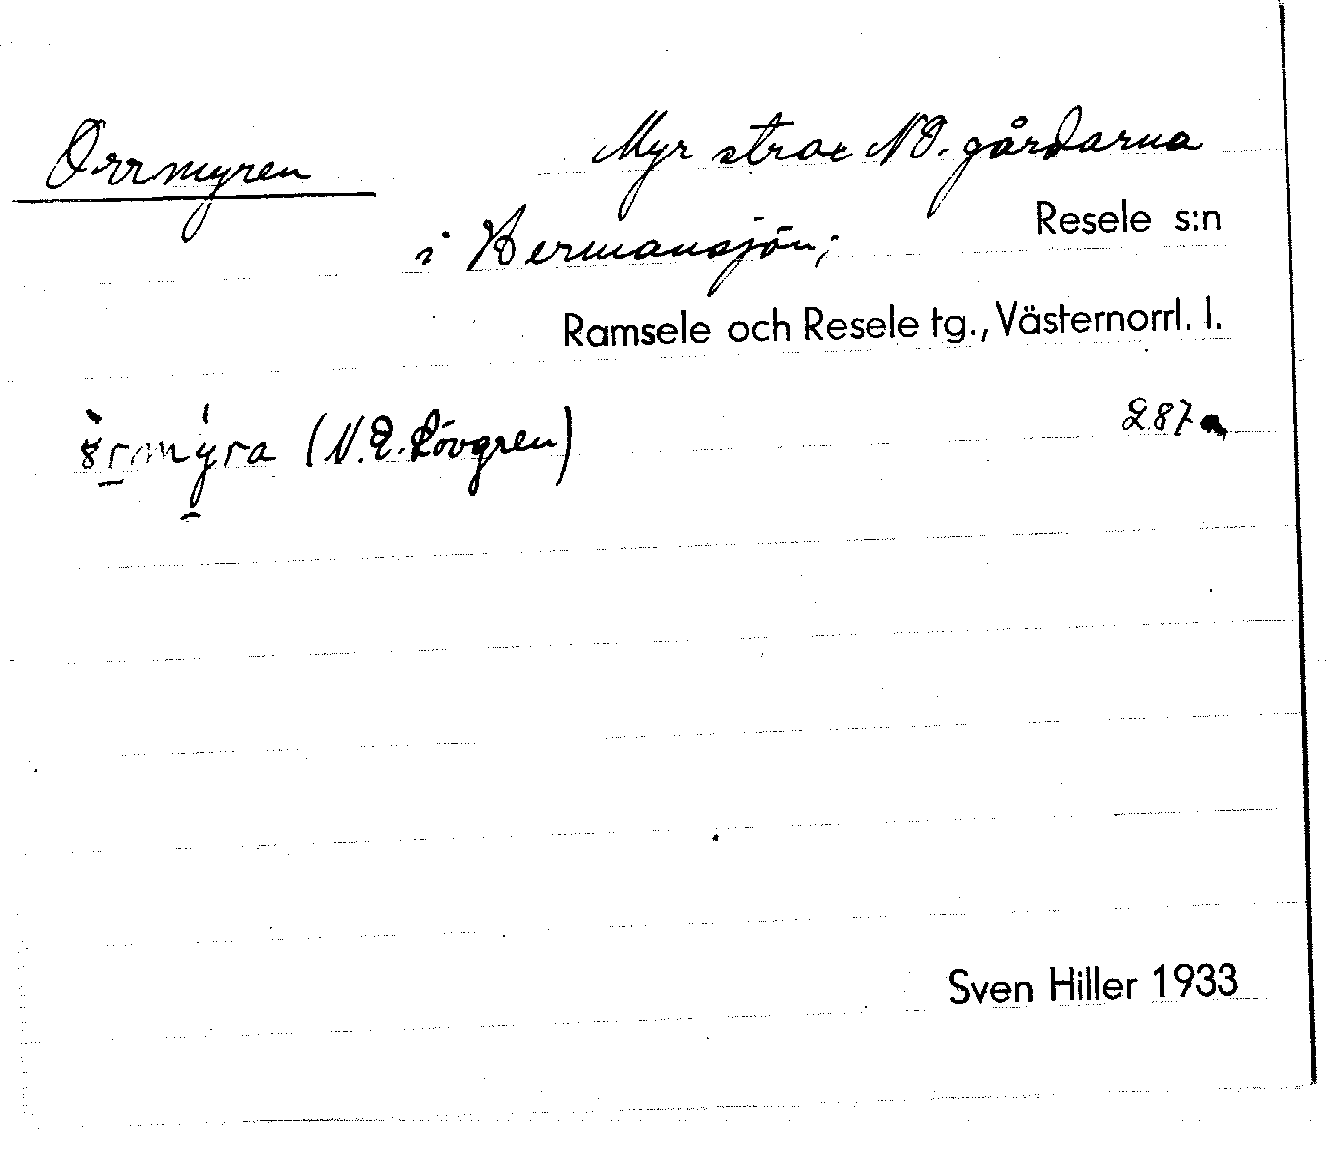 Orrmyren Myr strax NO. gårdarna
i Hermansjön; Resele s:n
Ramsele och Resele tg., Västernorrl. l.
(N.E. Lövgren) 287a
Sven Hiller 1933